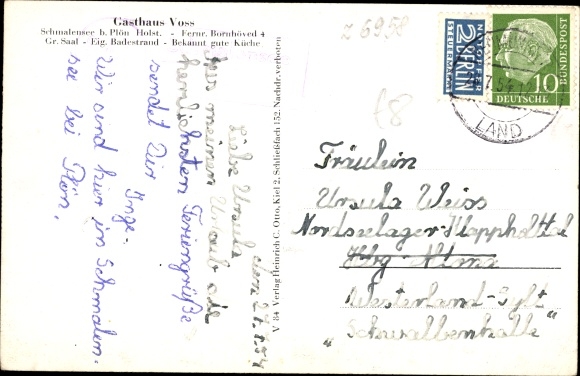 Gasthaus Voss
Schmalensee b. Plön Holst. - Fernr. Bornhöved 4
Gr. Saal - Eig. Badestrand - Bekannt gute Küche
z 6958
2 BERLIN
NOTOPFER
STEUERMARKE
DEUTSCHE
BUNDESPOST
10
LAND
V 84 Verlag Heinrich C. Otto, Kiel 2, Schließfach 152. Nachdr. verboten
Liebe Ursula
Aus meinem Urlaub die
herzlichsten Feriengrüße
sendet Dir Inge.
Wir sind hier im Schmalen-
see bei Plön.
Fräulein
Ursula Weiss
Nordseelager-Klappholttal
Hbg-Altona
Westerland-Sylt
„Schwalbenhalle"